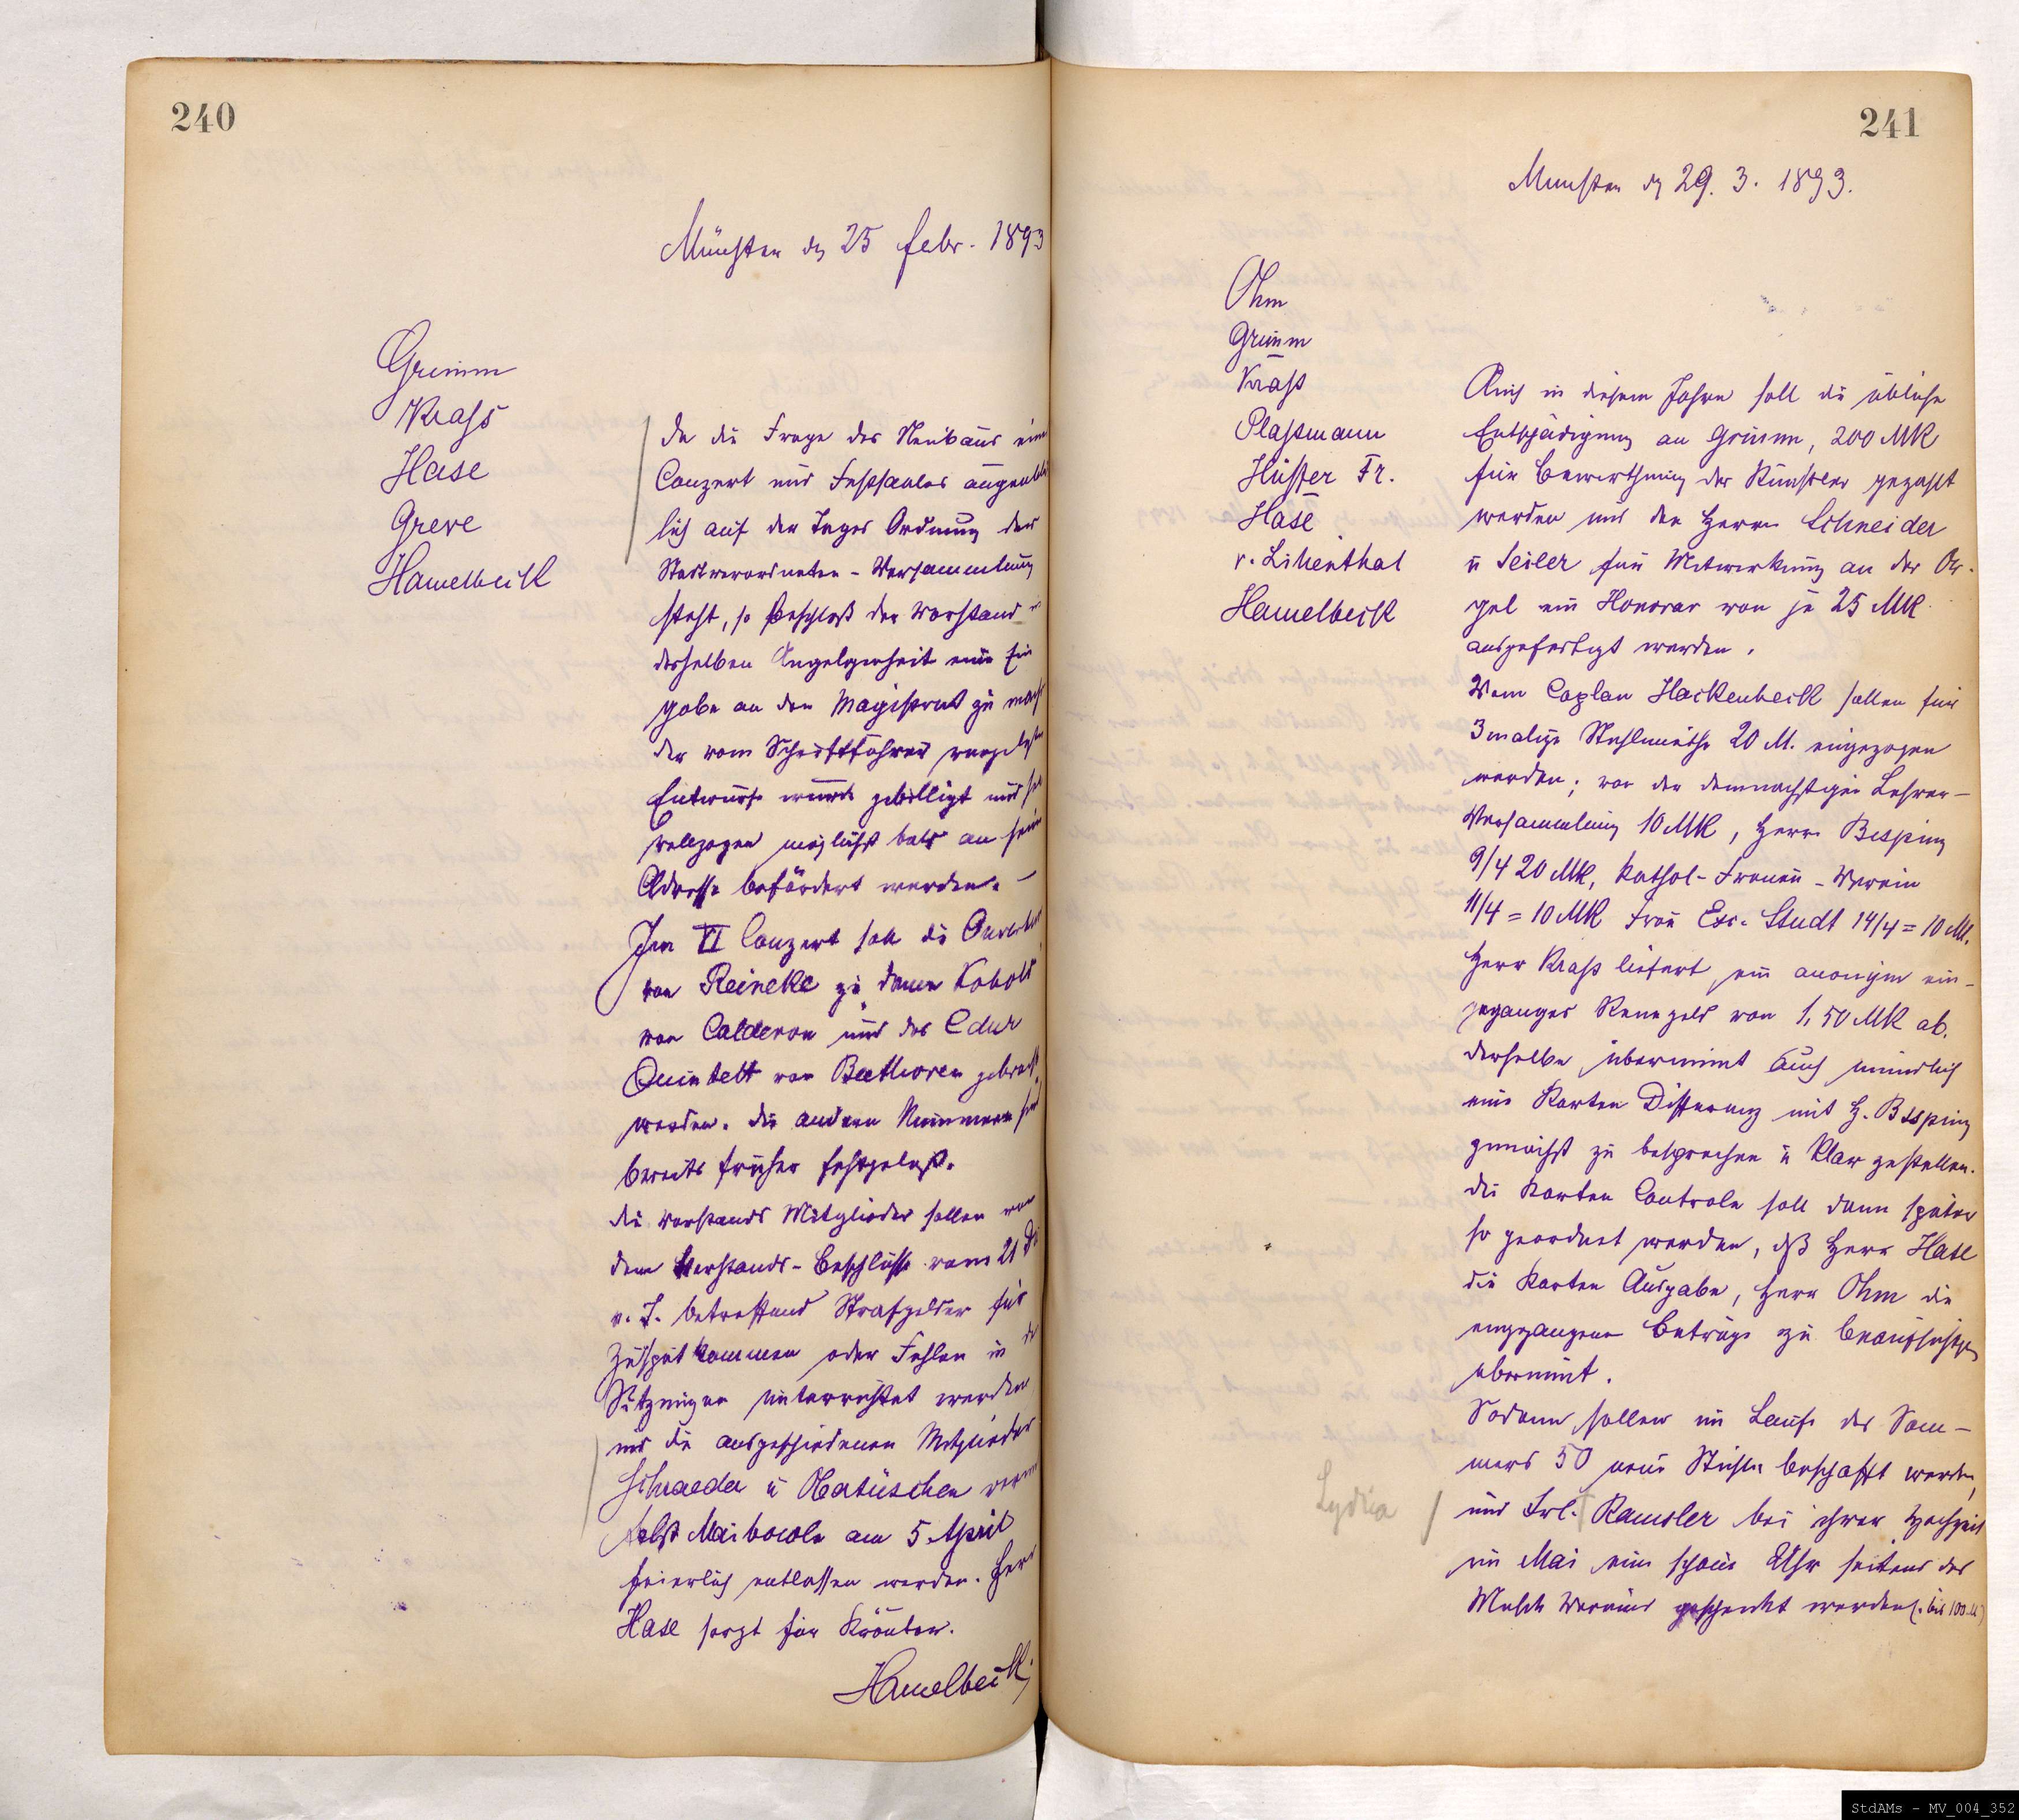 240
Münster dn 25 Febr. 1893
Grimm
Krass
Hase
Greve
Hamelbeck
Da die Frage des Neubaus eine
Conzert und Festsaales augenblick
lich auf der Tages Ordnung der
Stadtverordneten - Versammlung
steht, so beschloß der Vorstand in
derselben Angelgenheit eine Ein
gabe an den Magistrat zu mach
der vom Schriftführer vorgelegte
Entwurf wurde gebilligt und soll
vollzogen möglichst bald an seine
Adresse befördert werden. -
Im VI Conzert soll die Ouverture
von Reineke zu Dame Kobold
von Calderon und das Cdur
Quintett von Beethoven gebracht
werden. Die andern Nummern sind
bereits früher festgelegt.
Die Vorstands Mitglieder sollen von
dem Vorstands-Beschlusse vom 21 Dz
v. J. betreffend Strafgelder für
Zuspätkommen oder Fehlen in de
Sitzungen unterrichtet werden
und die ausgeschiedenen Mitglieder
Schraeder u Obertüschen
Maibowle am 5 April
feierlich entlassen werden. Herr
Hase sorgt für Kräuter.
Hamelbeck
241
Munster dn 29. 3. 1893.
Ohm
Grimm
Kraß
Plaßmann
Hüffer Fr.
Hase
v. Lilienthal
Hamelbeck
Auch in diesem Jahre soll die übliche
Entschädigung an Grimm, 200 MK
für Bewirthung der Künstler gezahlt
werden und den Herrn Schneider
u Seiler für Mitwirkung an der Or-
gel ein Honorar von je 25 MK
ausgefertigt werden.
Vom Caplan Hackenbeck sollen für
3malige Stuhlmiethe 20 M. eingezogen
werden; von der demnächstigen Lehrer-
Versammlung 10 MK, Herrn Bisping
9/4 20 MK, kathol- Frauen - Verein
11/4 = 10 MK Frau Exc. Studt 14/4 = 10 M.
Herr Kraß liefert ein anonym ein-
geganges Reuegeld von 1,50 MK ab.
Derselbe übernimmt auch mündlich
eine Karten Differenz mit H. Bisping
zunächst zu besprechen u klar zustellen.
Die Karten Controle soll dann später
so geordnet werden, dß Herr Hase
die Karten Ausgabe, Herr Ohm die
eingegangene Beträge zu beaufsichtigen
übernimt.
Sodann sollen im Laufe des Som-
mers 50 neue Stühle beschafft werden,
und Frl. Ramsler bei ihrer Hochzeit
Lydia
im Mai eine schöne Uhr seitens des
Musik Vereins geschenkt werden (. bis 100 M)
StdAMs - MV_004_352